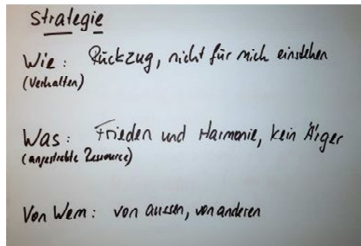 Strategie
Wie: Rückzug, nicht für mich einstehen
(Verhalten)
Was: Frieden und Harmonie, kein Ärger
(angestrebte Ressource)
Von Wem: von aussen, von anderen